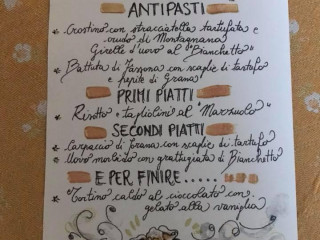 ANTIPASTI
Crostino con stracciatella tartufata e
crudo di Montagnana
Girelle d'uovo al "Bianchetto"
Battuta di Fassona con scaglie di tartufo
e perite di Grana
PRIMI PIATTI
Risotto e tagliolini al "Marzuolo"
SECONDI PIATTI
Carpaccio di Grana con scaglie di tartufo
Uovo morbido con grattugiata di Bianchetto
E PER FINIRE.....
Tortino caldo al cioccolato con
gelato alla vaniglia